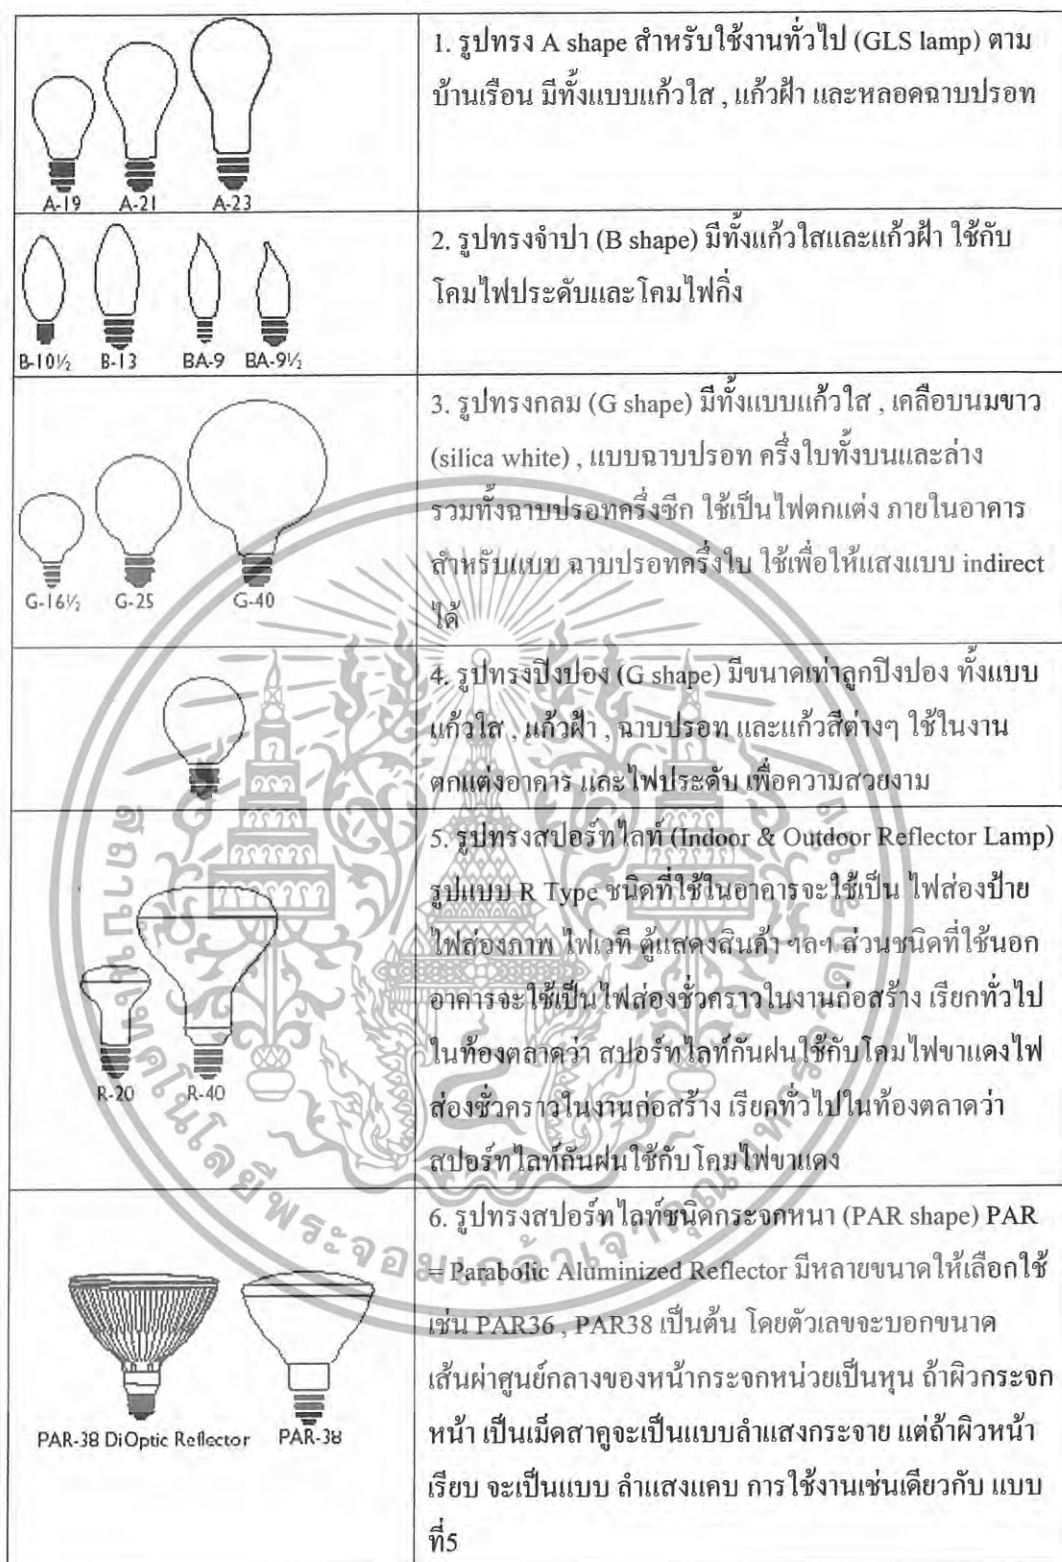 1. รูปทรง A shape สำหรับใช้งานทั่วไป (GLS lamp) ตาม
บ้านเรือน มีทั้งแบบแก้วใส , แก้วฝ้า และหลอดฉาบปรอท
A-19 A-21 A-23
2. รูปทรงจำปา (B shape) มีทั้งแก้วใสและแก้วฝ้า ใช้กับ
โคมไฟประดับและโคมไฟกิ่ง
B-10½ B-13 BA-9 BA-9½
3. รูปทรงกลม (G shape) มีทั้งแบบแก้วใส , เคลือบนมขาว
(silica white) , แบบฉาบปรอท ครึ่งใบทั้งบนและล่าง
รวมทั้งฉาบปรอทครึ่งซีก ใช้เป็นไฟตกแต่ง ภายในอาคาร
สำหรับแบบ ฉาบปรอทครึ่งใบ ใช้เพื่อให้แสงแบบ indirect
ได้
G-16½ G-25 G-40
4. รูปทรงปิงปอง (G shape) มีขนาดเท่าลูกปิงปอง ทั้งแบบ
แก้วใส , แก้วฝ้า , ฉาบปรอท และแก้วสีต่างๆ ใช้ในงาน
ตกแต่งอาคาร และไฟประดับ เพื่อความสวยงาม
5. รูปทรงสปอร์ทไลท์ (Indoor & Outdoor Reflector Lamp)
รูปแบบ R Type ชนิดที่ใช้ในอาคารจะใช้เป็น ไฟส่องป้าย
ไฟส่องภาพ ไฟเวที ตู้แสดงสินค้า ฯลฯ ส่วนชนิดที่ใช้นอก
อาคารจะใช้เป็นไฟส่องชั่วคราวในงานก่อสร้าง เรียกทั่วไป
ในท้องตลาดว่า สปอร์ทไลท์กันฝนใช้กับโคมไฟขาแดงไฟ
ส่องชั่วคราวในงานก่อสร้าง เรียกทั่วไปในท้องตลาดว่า
สปอร์ทไลท์กันฝนใช้กับโคมไฟขาแดง
R-20 R-40
6. รูปทรงสปอร์ทไลท์ชนิดกระจกหนา (PAR shape) PAR
= Parabolic Aluminized Reflector มีหลายขนาดให้เลือกใช้
เช่น PAR36 , PAR38 เป็นต้น โดยตัวเลขจะบอกขนาด
เส้นผ่าศูนย์กลางของหน้ากระจกหน่วยเป็นหุน ถ้าผิวกระจก
หน้า เป็นเม็ดสาคูจะเป็นแบบลำแสงกระจาย แต่ถ้าผิวหน้า
เรียบ จะเป็นแบบ ลำแสงแคบ การใช้งานเช่นเดียวกับ แบบ
ที่5
PAR-38 DiOptic Reflector PAR-38
สถาบันเทคโนโลยีพระจอมเกล้าเจ้าคุณทหารลาดกระบัง